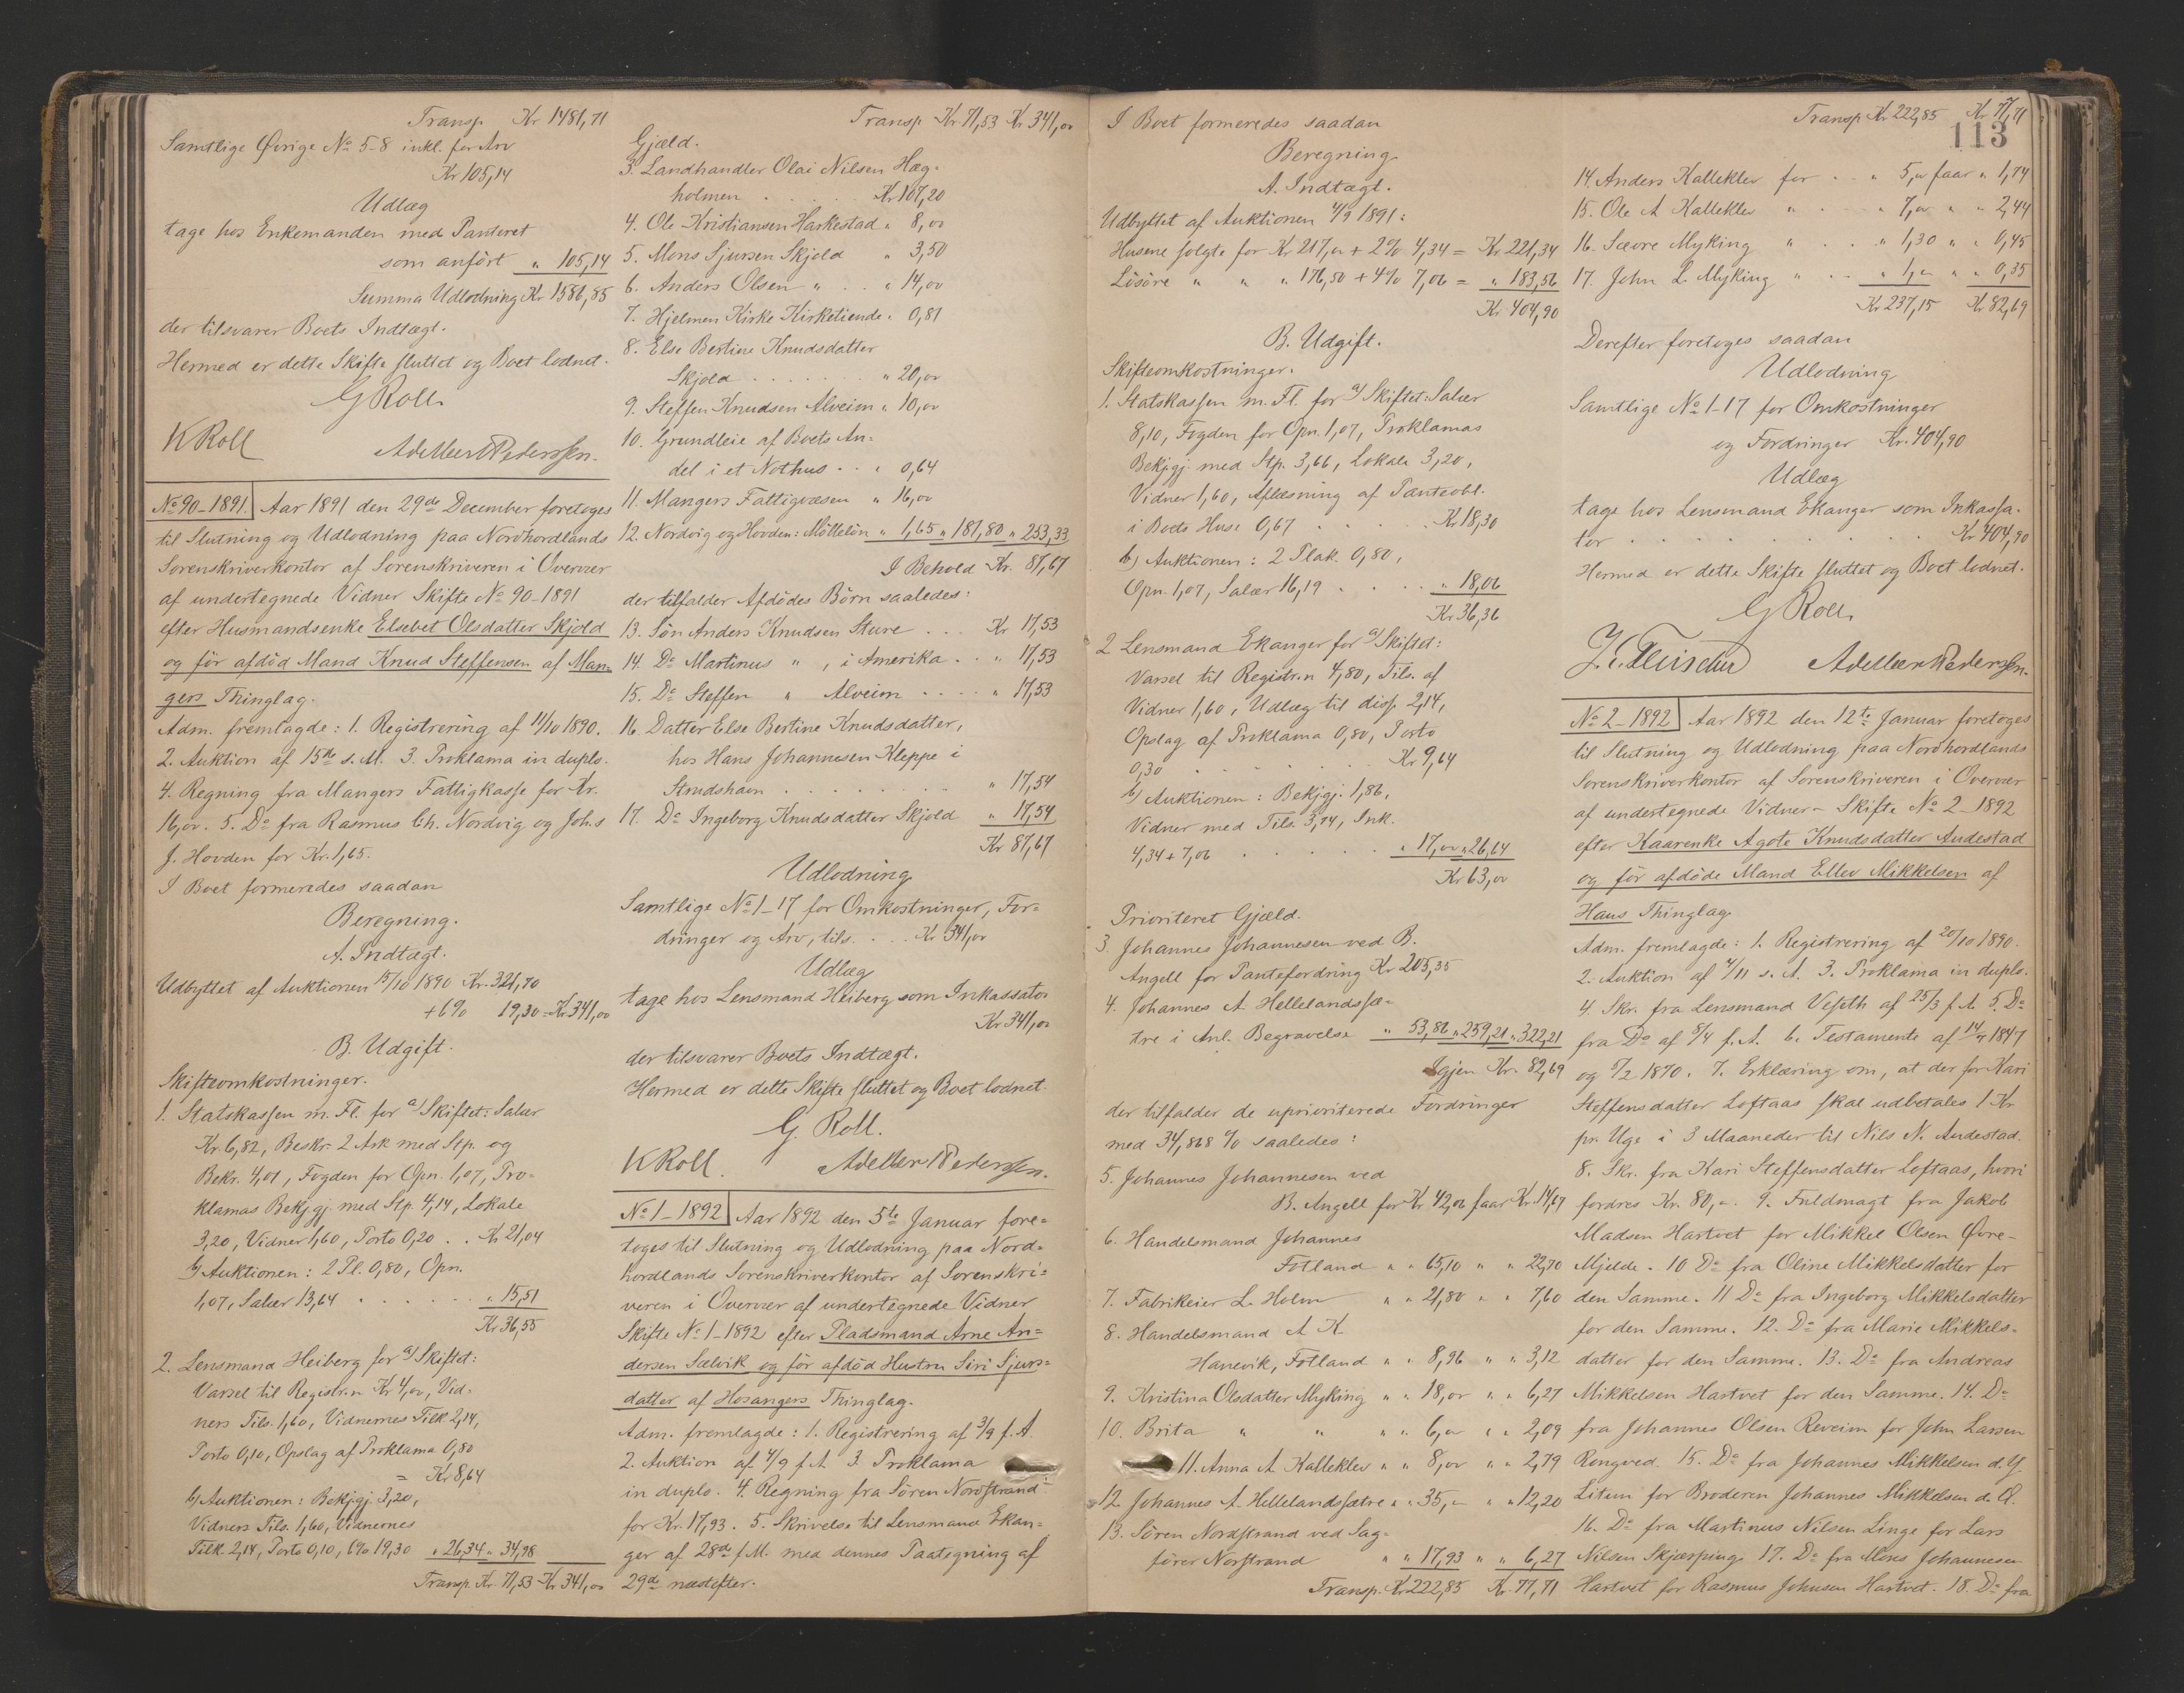 Transp. Kr 1481,71
Samtlige Øvrige No 5-8 inkl. for Arv
Kr 105,14
Udlæg
tage hos Enkemanden med Panteret
som anført " 105,14
Summa Udlodning Kr 1586,85
der tilsvarer Boets Indtægt.
Hermed er dette Skifte sluttet og Boet lodnet.
G Roll.
K Roll
Adelbert Pederssen.
No 90-1891. Aar 1891 den 29de December foretoges
til Slutning og Udlodning paa Nordhordlands
Sorenskriverkontor af Sorenskriveren i Overvær
af undertegnede Vidner Skifte No 90-1891
efter Husmandsenke Elsebet Olsdatter Skjold
og før afdöd Mand Knud Steffensen af Man=
gers Thinglag.
Adm. fremlagde: 1. Registrering af 11/10 1890.
2. Auktion af 15de s. M. 3. Proklama in duplo.
4. Regning fra Mangers Fattigkasse for Kr.
16,00. 5. Do fra Rasmus Ch. Nordvig og Johs
J. Hovden for Kr. 1,65.
I Boet formeredes saadan
Beregning.
A. Indtægt.
Udbyttet af Auktionen 15/10 1890 Kr. 321,70
+6% 19,30 = Kr 341,00
B. Udgift.
Skifteomkostninger.
1. Statskassen m. Fl. for a) Skiftet: Salær
Kr. 6,82, Beskr. 2 Ark med Stp. og
Bekr. 4,01, Fogden for Opn. 1,07, Pro=
klamas Bekjgj. med Stp. 4,14, Lokale
3,20, Vidner 1,60, Porto 0,20 . . Kr 21,04
b) Auktionen: 2 Pl. 0,80, Opn.
1,07, Salær 13,64 . . . . . " 15,51
Kr 36,55
2. Lensmand Heiberg for a) Skiftet:
Varsel til Registr.n Kr 4,00, Vid=
ners Tils. 1,60, Vidnernes Tilk. 2,14,
Porto 0,10, Opslag af Proklama 0,80
= Kr 8,64
b) Auktionen: Bekjgj. 3,20,
Vidners Tils. 1,60, Vidnernes
Tilk. 2,14, Porto 0,10, 6% 19,30 " 26,34 " 34,98
Transp. Kr. 71,53 Kr 341,00
Transp. Kr. 71,53 Kr 341,00
Gjæld.
3. Landhandler Olai Nilsen Hæg=
holmen . . . . . Kr 107,20
4. Ole Kristiansen Harkestad " 8,00
5. Mons Sjursen Skjold " 3,50
6. Anders Olsen " . . " 14,00
7. Hjelmen Kirke Kirketiende " 0,81
8. Else Bertine Knudsdatter
Skjold . . . . . . . " 20,00
9. Steffen Knudsen Alveim " 10,00
10. Grundleie af Boets An=
del i et Nothus . . " 0,64
11. Mangers Fattigvæsen " 16,00
12. Nordvig og Hovden: Mölleløn " 1,65 " 181,80 " 253,33
I Behold Kr. 87,67
der tilfalder Afdödes Börn saaledes:
13. Sön Anders Knudsen Sture . . . Kr 17,53
14. Do Martinus " , i Amerika . . " 17,53
15. Do Steffen " Alveim . . . . " 17,53
16. Datter Else Bertine Knudsdatter,
hos Hans Johannesen Kleppe i
Strudshavn . . . . . . . . . " 17,54
17. Do Ingeborg Knudsdatter Skjold " 17,54
Kr 87,67
Udlodning
Samtlige No 1-17 for Omkostninger, For=
dringer og Arv, tils. . . . Kr 341,00
Udlæg
tage hos Lensmand Heiberg som Inkassator
Kr 341,00
der tilsvarer Boets Indtægt.
Hermed er dette Skifte sluttet og Boet lodnet.
G. Roll.
K Roll.
Adelbert Pederssen.
No 1-1892 Aar 1892 den 5te Januar fore=
toges til Slutning og Udlodning paa Nord=
hordlands Sorenskriverkontor af Sorenskri=
veren i Overvær af undertegnede Vidner
Skifte No 1-1892 efter Pladsmand Arne An=
dersen Sælvik og før afdöd Hustru Siri Sjurs=
datter af Hosangers Thinglag.
Adm. fremlagde: 1. Registrering af 3/9 f. A.
2. Auktion af 4/9 f. A. 3. Proklama
in duplo. 4. Regning fra Sören Nordstrand
for Kr. 17,93. 5. Skrivelse til Lensmand Ekan=
ger af 28de f. M. med dennes Paategning af
29de næstefter.
I Boet formeredes saadan
Beregning.
A. Indtægt.
Udbyttet af Auktionen 4/9 1891:
Husene solgte for Kr 217,00 + 2% 4,34 = Kr 221,34
Lösöre " " " 176,50 + 4% 7,06 = " 183,56
Kr 404,90
B. Udgift.
Skifteomkostninger.
1. Statskassen m. Fl. for a) Skiftet: Salær
8,10, Fogden for Opn. 1,07, Proklamas
Bekjgj. med Stp. 3,66, Lokale 3,20,
Vidner 1,60, Aflæsning af Panteobl.
i Boets Huse 0,67 . . . . . Kr 18,30
b) Auktionen: 2 Plak. 0,80,
Opn. 1,07, Salær 16,19 . . . . " 18,06
Kr 36,36
2 Lensmand Ekanger for a) Skiftet:
Varsel til Registr.n 4,80, Tils. af
Vidner 1,60, Udlæg til diss. 2,14,
Opslag af Proklama 0,80, Porto
0,30 . . . . . . . . Kr 9,64
b) Auktionen: Bekjgj. 1,86,
Vidner med Tils. 3,74, Ink.
4,34 + 7,06 . . . . . " 17,00 " 26,64
Kr 63,00
Prioriteret Gjæld.
3 Johannes Johannesen ved B.
Angell for Pantefordring Kr 205,35
4. Johannes A. Hellelandssæ=
tre i Anl. Begravelse " 53,86 " 259,21 " 322,21
Igjen Kr. 82,69
der tilfalder de uprioriterede Fordringer
med 34,868 % saaledes:
5. Johannes Johannesen ved
B. Angell for Kr 42,06 faar Kr. 14,67
6. Handelsmand Johannes
Fotland " " 65,10 " " 22,70
7. Fabrikeier L. Holm " " 21,80 " " 7,60
8. Handelsmand A K
Hanevik, Fotland " " 8,96 " " 3,12
9. Kristina Olsdatter Myking " " 18,00 " " 6,27
10. Brita " " " " 6,00 " " 2,09
11. Anna A Kalleklev " " 8,00 " " 2,79
12 Johannes A. Hellelandssætre " " 35,00 " " 12,20
13. Sören Nordstrand ved Sag=
förer Norstrand " " 17,93 " " 6,27
Transp. Kr. 222,85 Kr. 77,71
Transp Kr. 222,85 Kr. 77,71
113
14. Anders Kalleklev for . . " 5,00 faar " 1,74
15. Ole A Kalleklev " . . " 7,00 " " 2,44
16. Sævre Myking " . . " 1,30 " " 0,45
17. John L. Myking " . . " 1,00 " " 0,35
Kr 237,15 Kr 82,69
Derefter foretoges saadan
Udlodning
Samtlige No 1-17 for Omkostninger
og Fordringer Kr. 404,90
Udlæg
tage hos Lensmand Ekanger som Inkassa=
tor . . . . . . . . . . Kr 404,90
Hermed er dette Skifte sluttet og Boet lodnet.
G Roll.
Fleischer
Adelbert Pederssen.
No 2-1892 Aar 1892 den 12te Januar foretoges
til Slutning og Udlodning paa Nordhordlands
Sorenskriverkontor af Sorenskriveren i Overvær
af undertegnede Vidner - Skifte No 2-1892
efter Kaarenke Agote Knudsdatter Audestad
og før afdöde Mand Ellev Mikkelsen af
Haus Thinglag.
Adm. fremlagde: 1. Registrering af 20/10 1890.
2. Auktion af 4/11 s. A. 3. Proklama in duplo.
4. Skr. fra Lensmand Veseth af 25/3 f. A. 5. Do
fra Do af 8/4 f. A. 6. Testamente af 1847
og 1870. 7. Erklæring om, at der for Kari
Steffensdatter Loftaas skal udbetales 1 Kr
pr. Uge i 3 Maaneder til Nils N. Audestad.
8. Skr. fra Kari Steffensdatter Loftaas, hvori
fordres Kr. 80,00. 9. Fuldmagt fra Jakob
Madsen Hartvet for Mikkel Olsen Øvre-
Mjelde. 10 Do fra Oline Mikkelsdatter for
den Samme. 11 Do fra Ingeborg Mikkelsdatter
for den Samme. 12. Do fra Marie Mikkels=
datter for den Samme. 13. Do fra Andreas
Mikkelsen Hartvet for den Samme. 14. Do
fra Johannes Olsen Reveim for John Larsen
Rongved. 15. Do fra Johannes Mikkelsen d. Y.
Litun for Broderen Johannes Mikkelsen d. Æ.
16. Do fra Martinus Nilsen Linge for Lars
Nilsen Skjærping. 17. Do fra Mons Johannesen
Hartvet for Rasmus Johnsen Hartvet. 18. Do fra